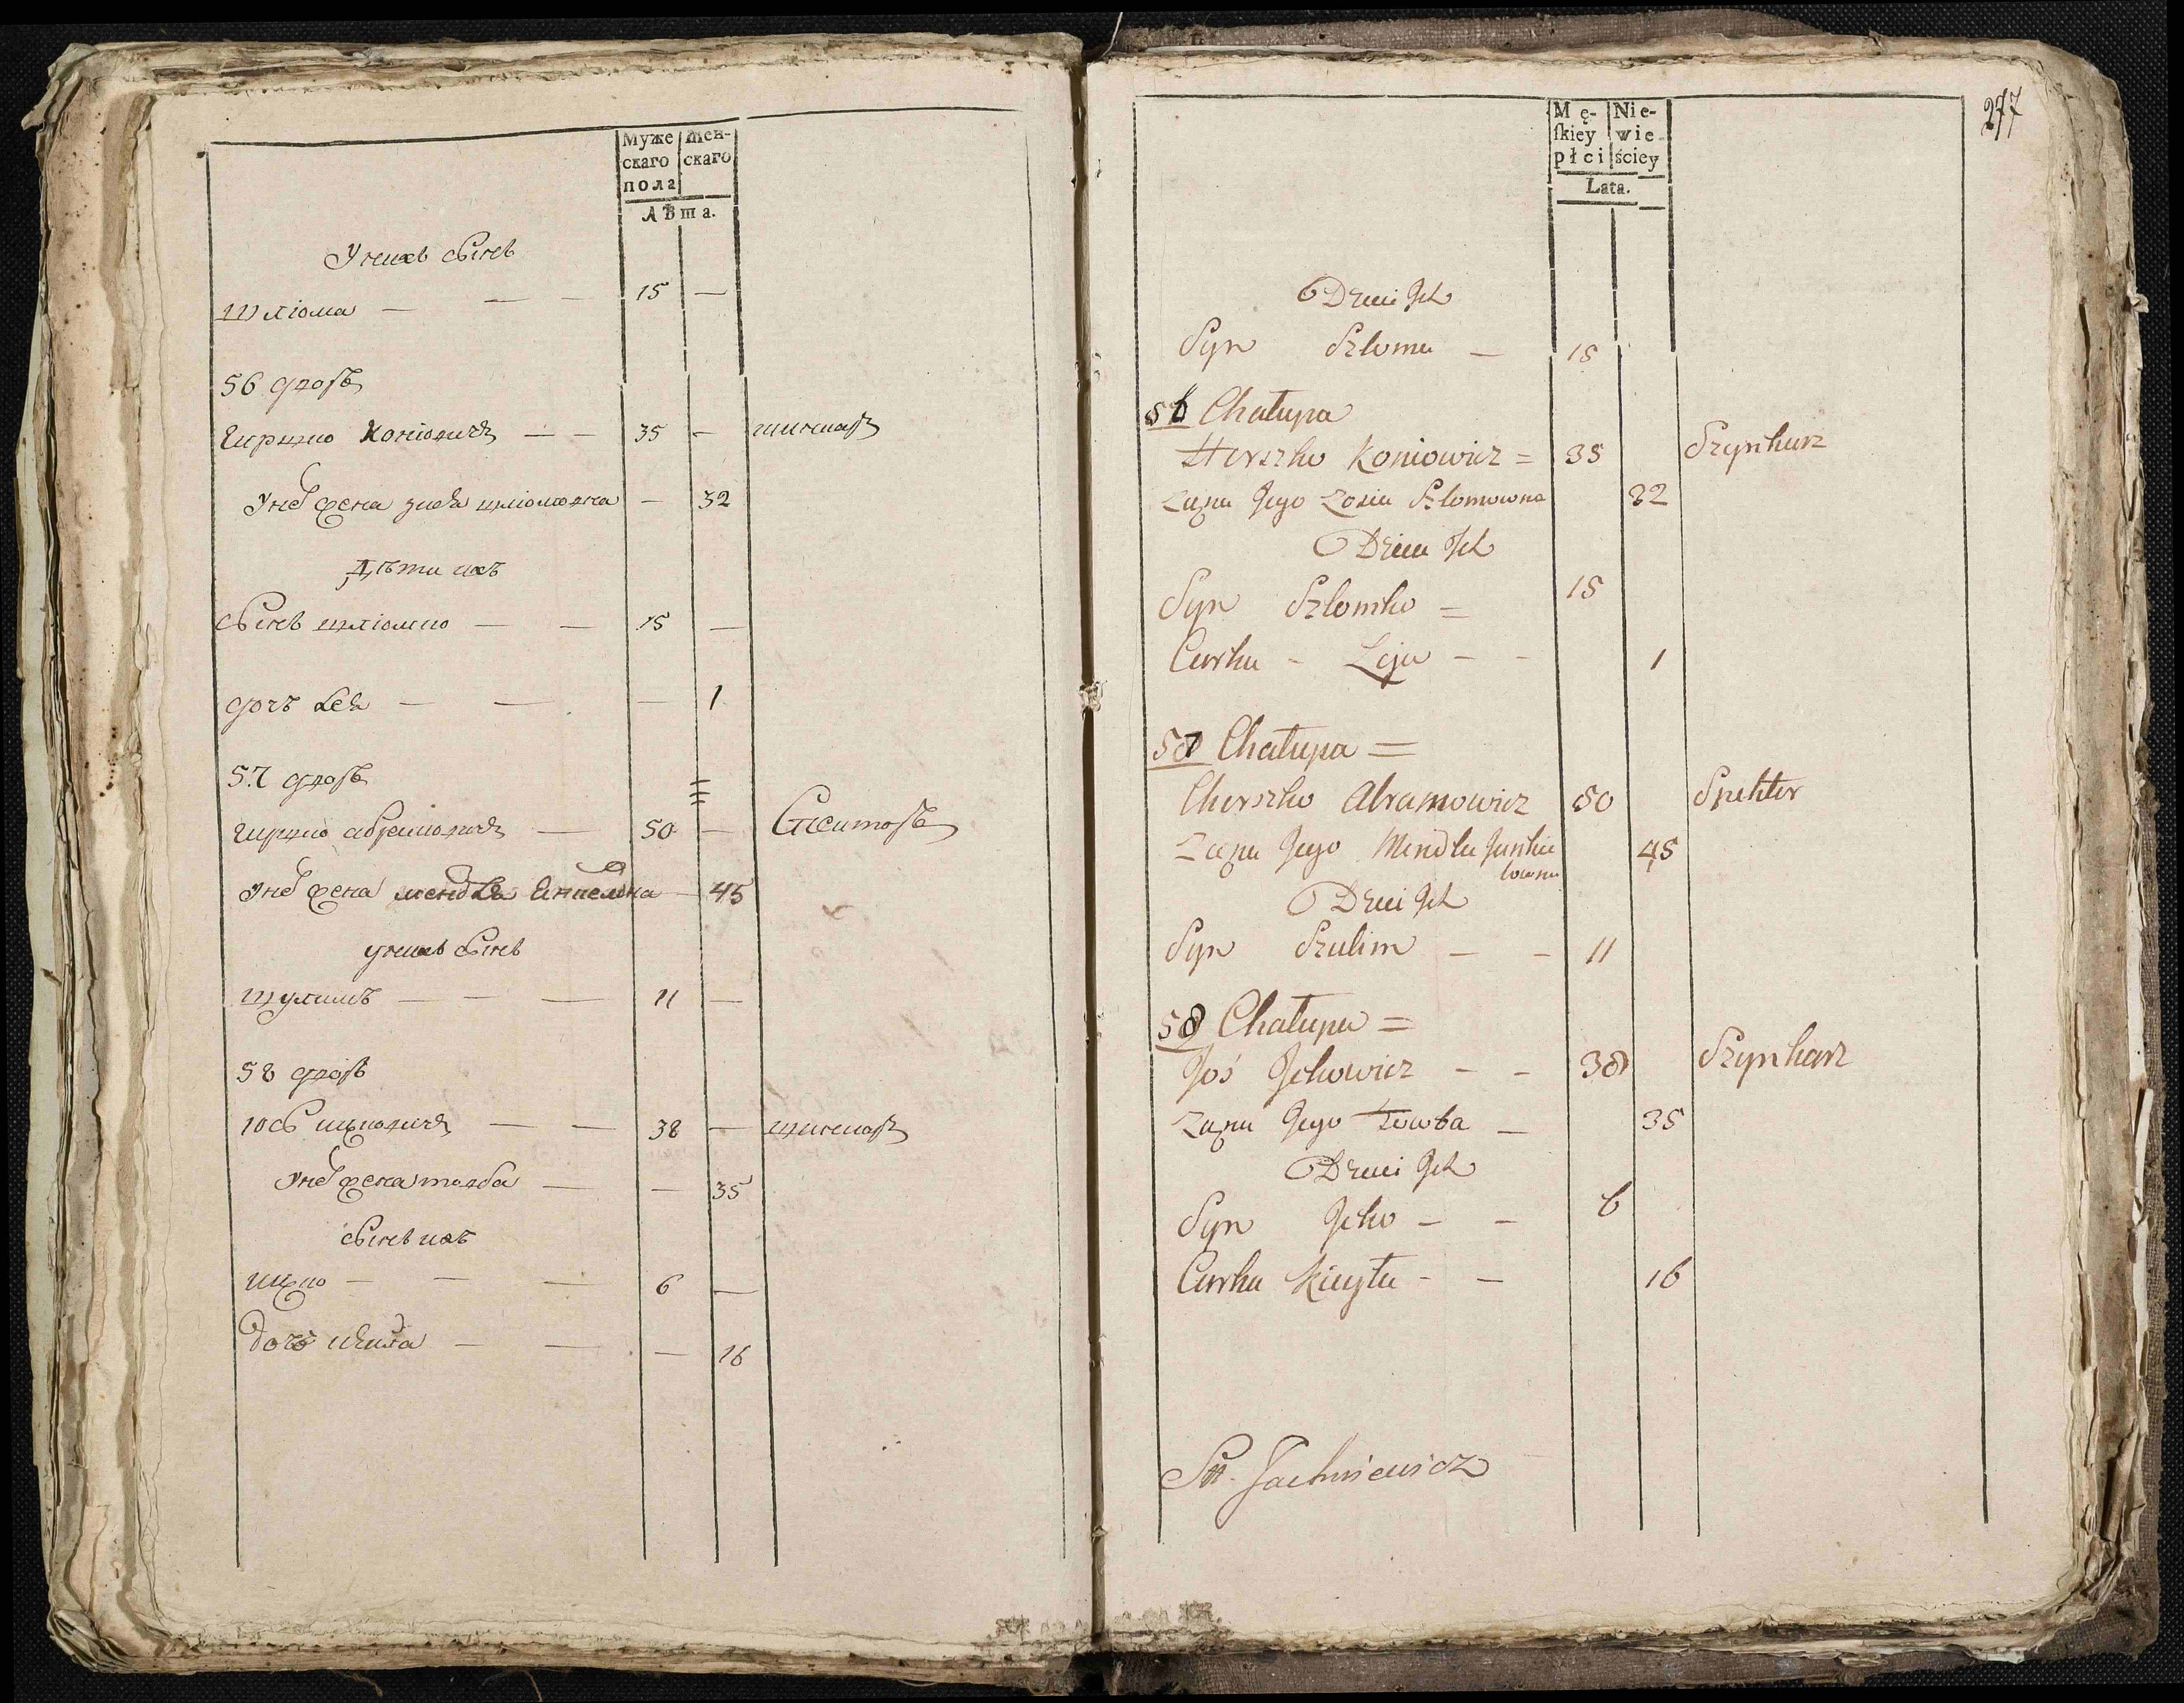 Муже скаго пола
Жен- скаго
Лѣта.
У нихъ сынъ
Шліома — — — 15 —
56 дворъ
Гиршко Коніовичъ — — 35 — шинкаръ
У него жена Зися Шліомовна — 32
Дѣти ихъ
сынъ Шліомко — — 15 —
дочъ Лея — — — 1
57 дворъ
Гиршко Абрамовичъ — 50 —
У него жена Мендля Янкелевна — 45
У нихъ сынъ
Шулимъ — — — 11 —
58 дворъ
Іосъ Ицковичъ — — 38 — шинкаръ
У него жена товба — — 35
сынъ ихъ
Ицко — — — 6 —
дочъ — — — 16
277
Mę- skiey płci
Nie- wie- ściey
Lata.
Dzieci Ich
Syn Szloma — 15
56 Chałupa
Herszko Koniowicz = 35 Szynkarz
Żona Jego Zosia Szlomowna 32
Dzieci Ich
Syn Szlomko = 15
Curka - Leja - - 1
57 Chałupa =
Cherszko Abramowicz 50 Spektor
Żona Jego Mendla Jankielowna 45
Dzieci Ich
Syn Szulim — — 11
58 Chałupa =
Joś Ickowicz - - 38 Szynkarz
Żona Jego Towba — 35
Dzieci Ich
Syn Icko — — 6
Curka - — 16